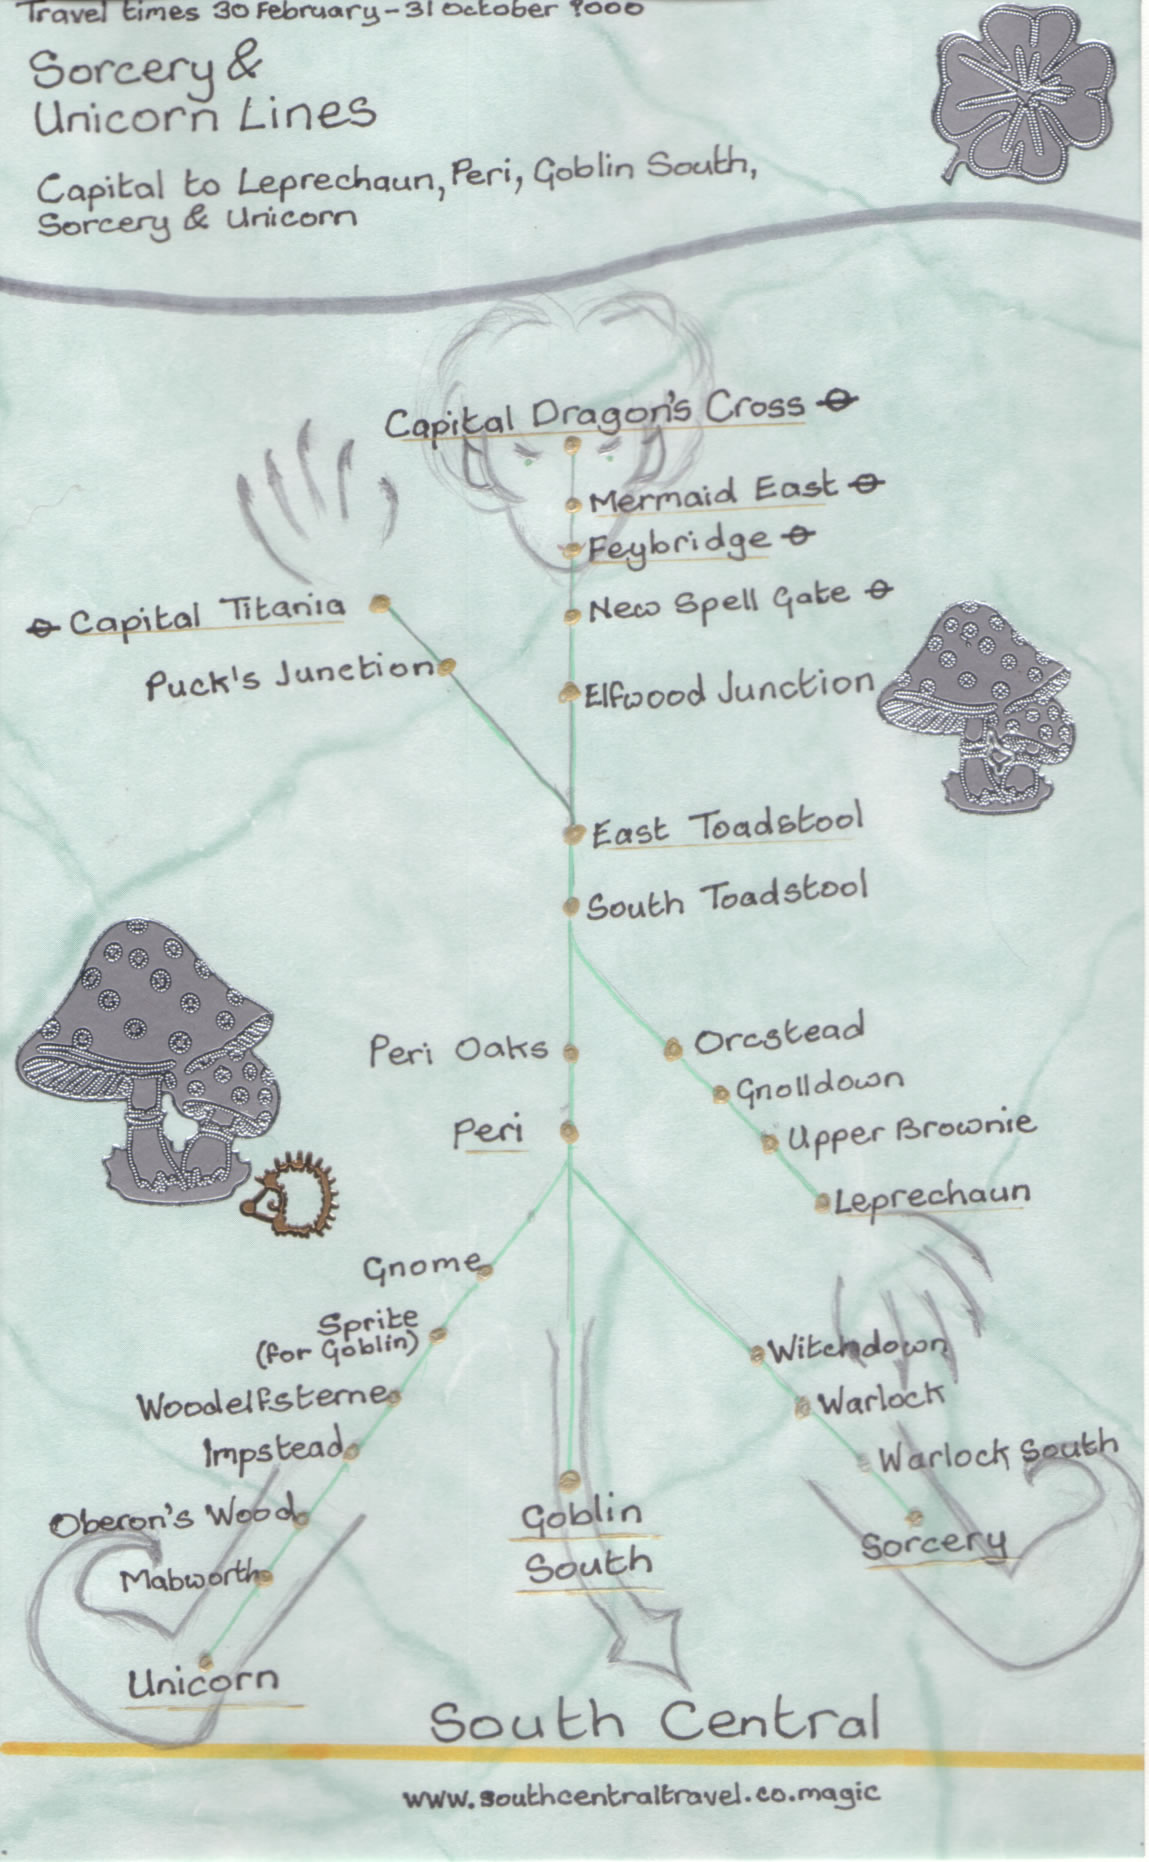 Travel times 30 February - 31 October 9000
Sorcery &
Unicorn Lines
Capital to Leprechaun, Peri, Goblin South,
Sorcery & Unicorn
Capital Dragon's Cross
Mermaid East
Feybridge
Capital Titania
New Spell Gate
Puck's Junction
Elfwood Junction
East Toadstool
South Toadstool
Peri Oaks
Orcstead
Gnolldown
Peri
Upper Brownie
Leprechaun
Gnome
Sprite
(for Goblin)
Witchdown
Woodelfsterne
Warlock
Impstead
Warlock South
Oberon's Wood
Goblin
South
Sorcery
Mabworth
Unicorn
South Central
www.southcentraltravel.co.magic